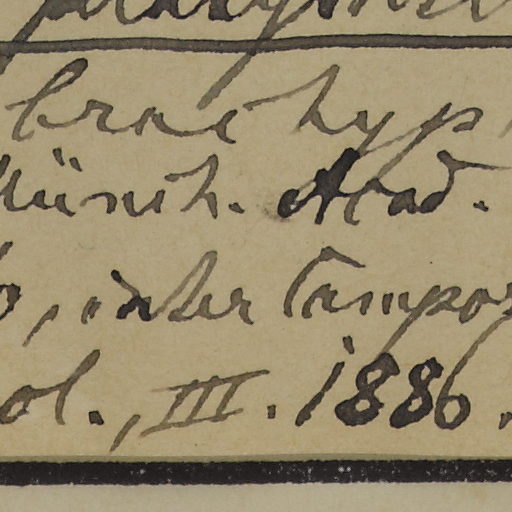 brachyp
Münch. Acad.
, inter Campos
ol., III. 1886.